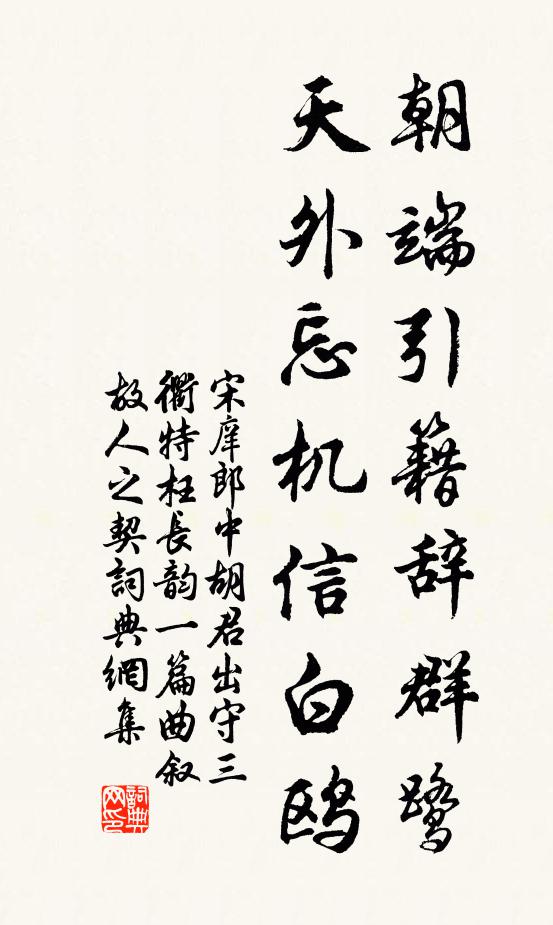 朝端引籍辞群鹭
天外忘机信白鸥
宋庠郎中胡君出守三
衢特枉長韵一篇曲叙
故人之契詞典網集
詞典网印